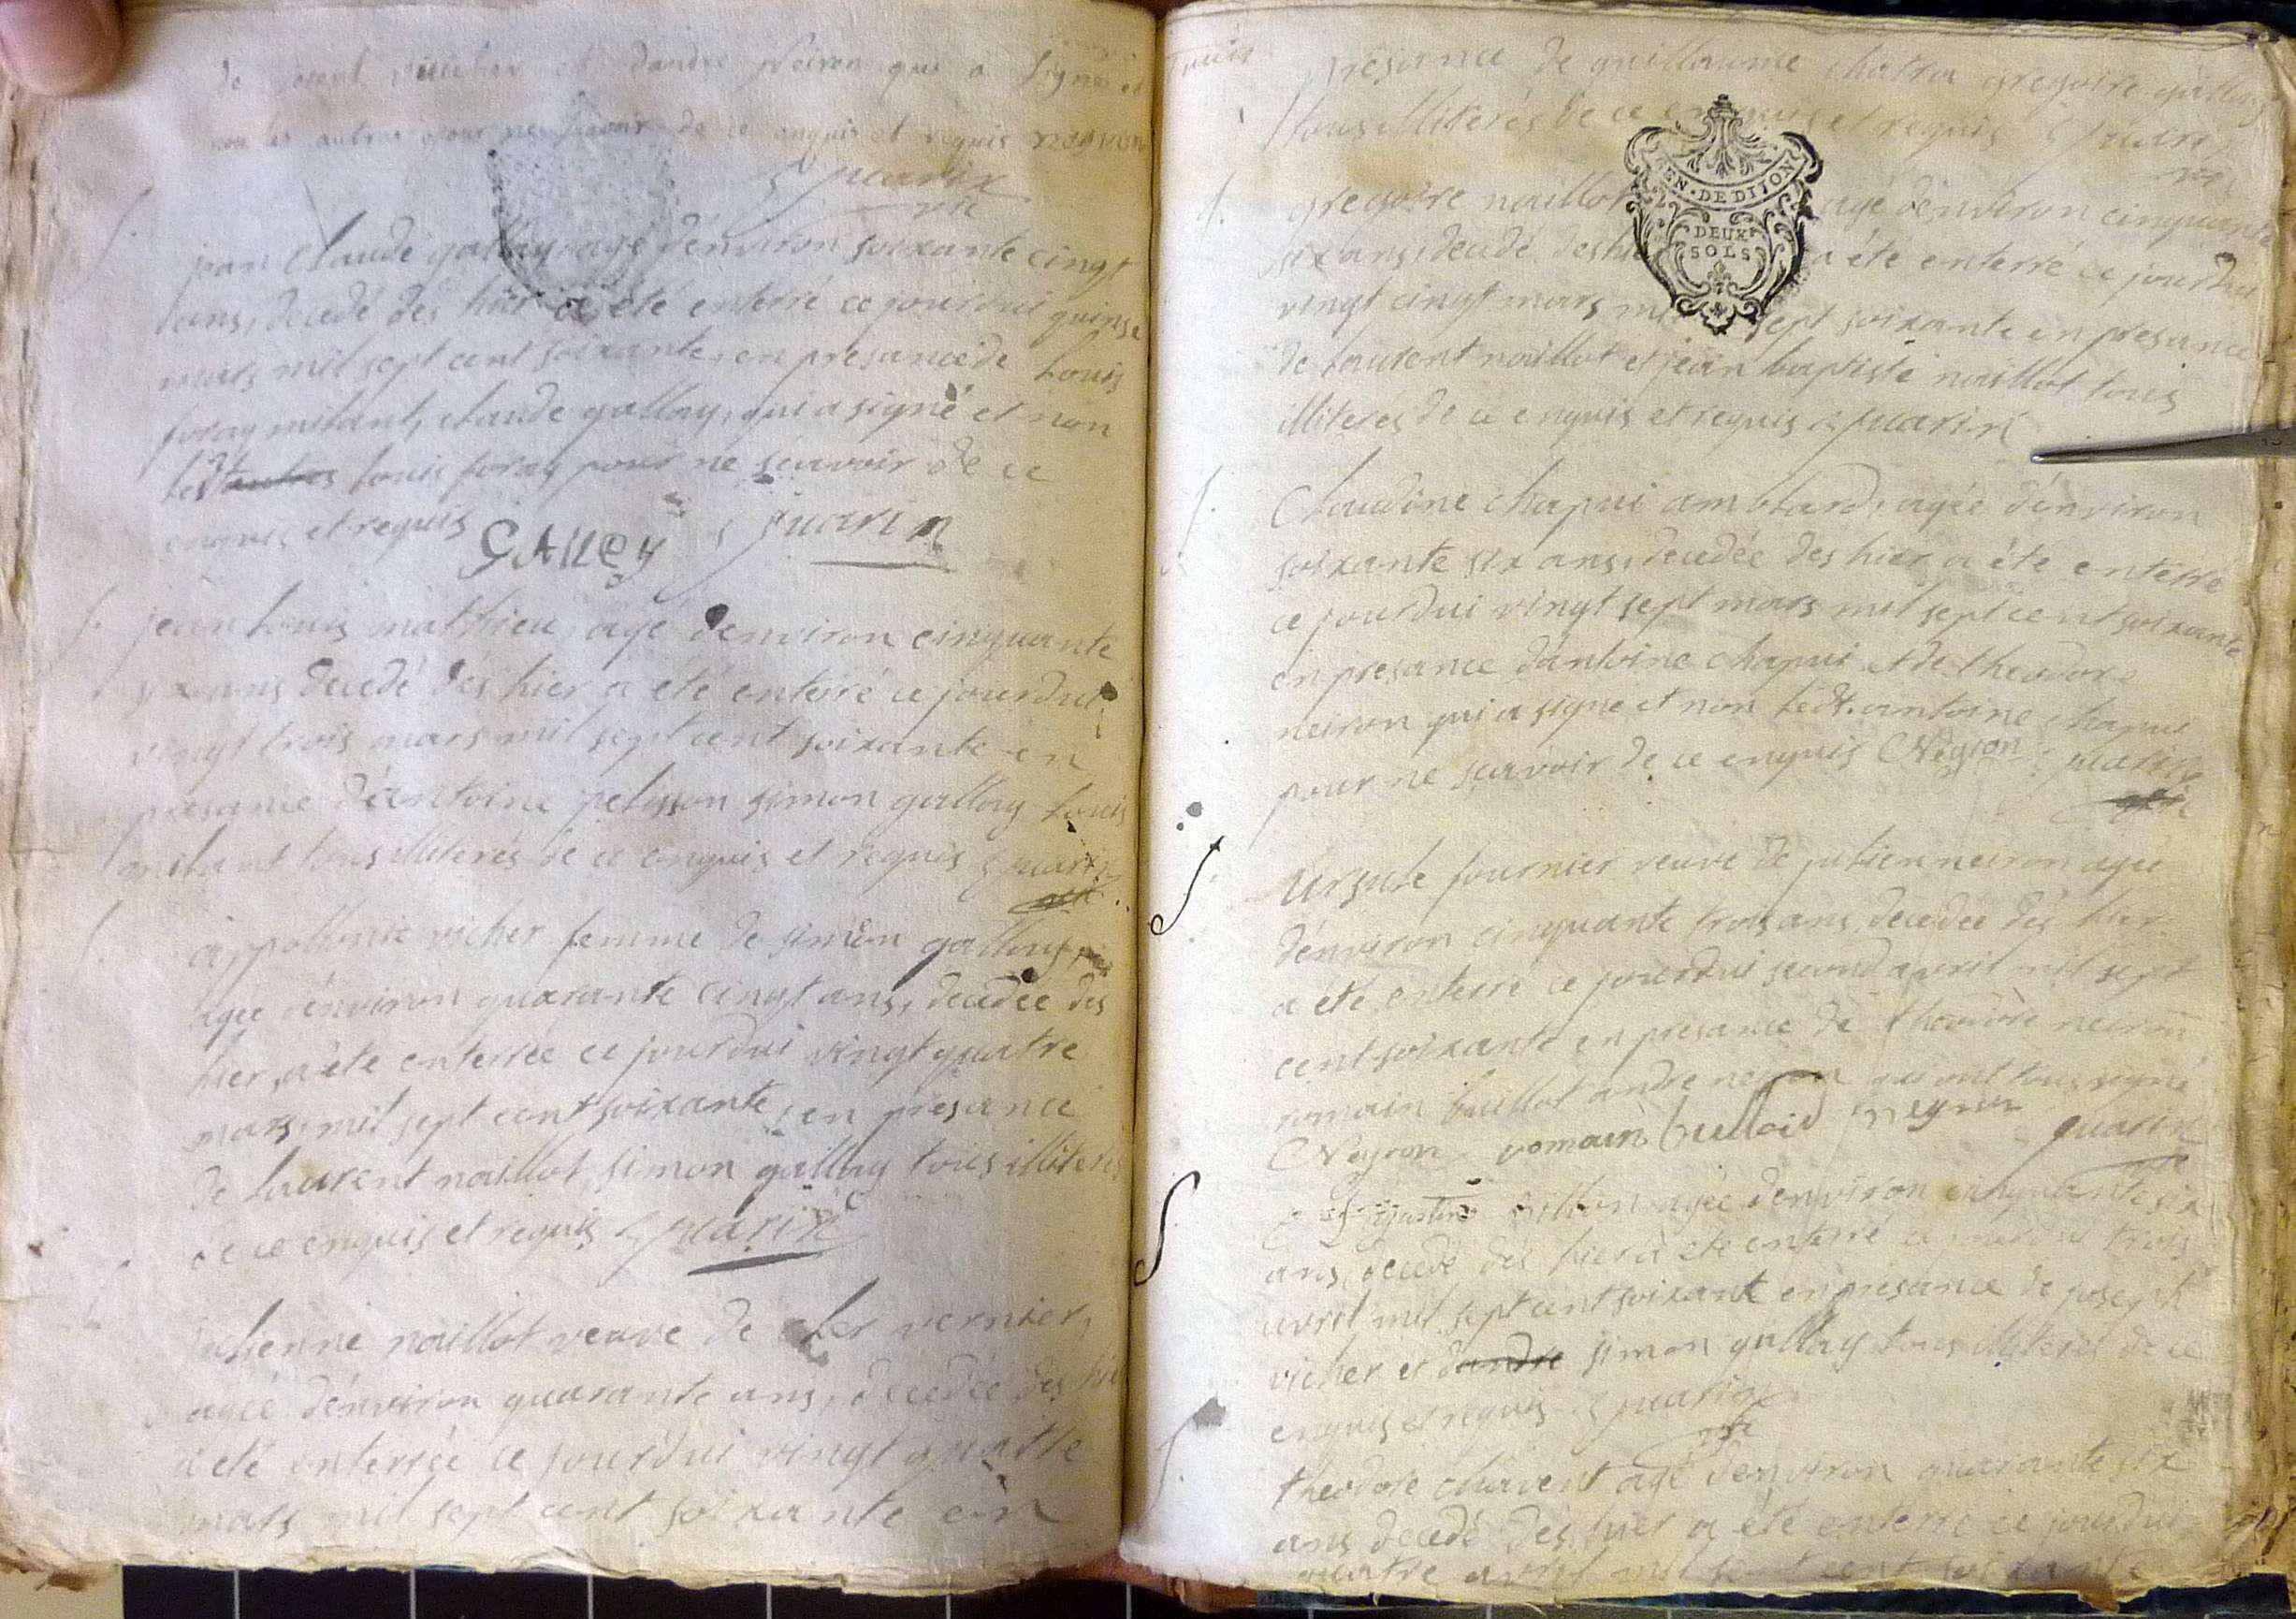 de vicher et dandre Neiron qui a signé et
non les autres pour ne scavoir de ce enquis et requis neyron
Quarin
vic
jean claude gallay agé d'environ soixante cinqt
ans, decedé dés hier a été enterré ce jourdui quinse
mars mil sept cent soixante, en presance de Louis
foray milant, claude gallay, qui a signé et non
ledt louis foray pour ne scavoir de ce
enquis et requis GAlley Quarin
jean Louis mathieu, agé d'environ cinquante
six ans decedé dés hier a été enterré ce jourdui
vingt trois mars mil sept cent soixante en
presance d'antoine pelisson simon gallay Louis
milant tous illiterés de ce enquis et requis Quarin
appollonie vicher femme de simon gallay,
agée d'environ quarante cinqt ans, decedée dés
hier, a été enterrée ce jourdui vingt quatre
mars mil sept cent soixante, en presance
de Laurent naillot, simon gallay tous illiterés
de ce enquis et requis Quarin
naillot veuve de vernier,
agée d'environ quarante ans, decedée des hier
a été enterrée ce jourdui vingt quattre
mars mil sept cent soixante en
presance de guillaume chatra gregoire gallay
tous illiterés de ce enquis et requis Quarin
vic
gregoire naillot agé d'environ cinquante
six ans, decedé des hier a été enterré ce jourdui
vingt cinqt mars mil sept soixante en presance
de Laurent naillot et jean baptiste naillot tous
illiteres de ce enquis et requis Quarin
EN · DE DIJON
DEUX
SOLS
Claudine chapui amblard, agée d'environ
soixante six ans, decedée des hier a été enterré
ce jourdui vingt sept mars mil sept cent soixante
en presance d'antoine chapui et de theodore
neiron qui a signe et non ledt. antoine chapui
pour ne scavoir de ce enquis Neyron Quarin
ursule fournier veuve de julien neiron agée
d'environ cinquante trois ans, decedée dés hier
a été enterré ce jourdui second avril mil sept
cent soixante en presance de theodore neiron
romain buillot andre neyron qui ont tous signé
Neyron romain builloid Neyron Quarin
billion agée d'environ cinquante six
ans, decedé dés hier a été enterré ce jourdui trois
avril mil sept cent soixante en presance de joseph
vicher et dandre simon gallay tous illiterés de ce
enquis et requis Quarin
theodore chavent agé d'environ quarante six
ans decedé dés hier a été enterré ce jourdui
quatre avril mil sept cent soixante